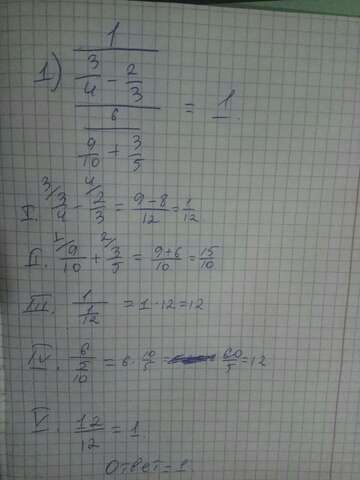 1) 1
3/4 - 2/3
6 = 1
9/10 + 3/5
I. 3/ 3/4 - 4/ 2/3 = 9-8/12 = 1/12
II. 1/ 9/10 + 2/ 3/5 = 9+6/10 = 15/10
III. 1/(1/12) = 1·12 = 12
IV. 6/(5/10) = 6·10/5 = 60/5 = 12
V. 12/12 = 1
Ответ = 1